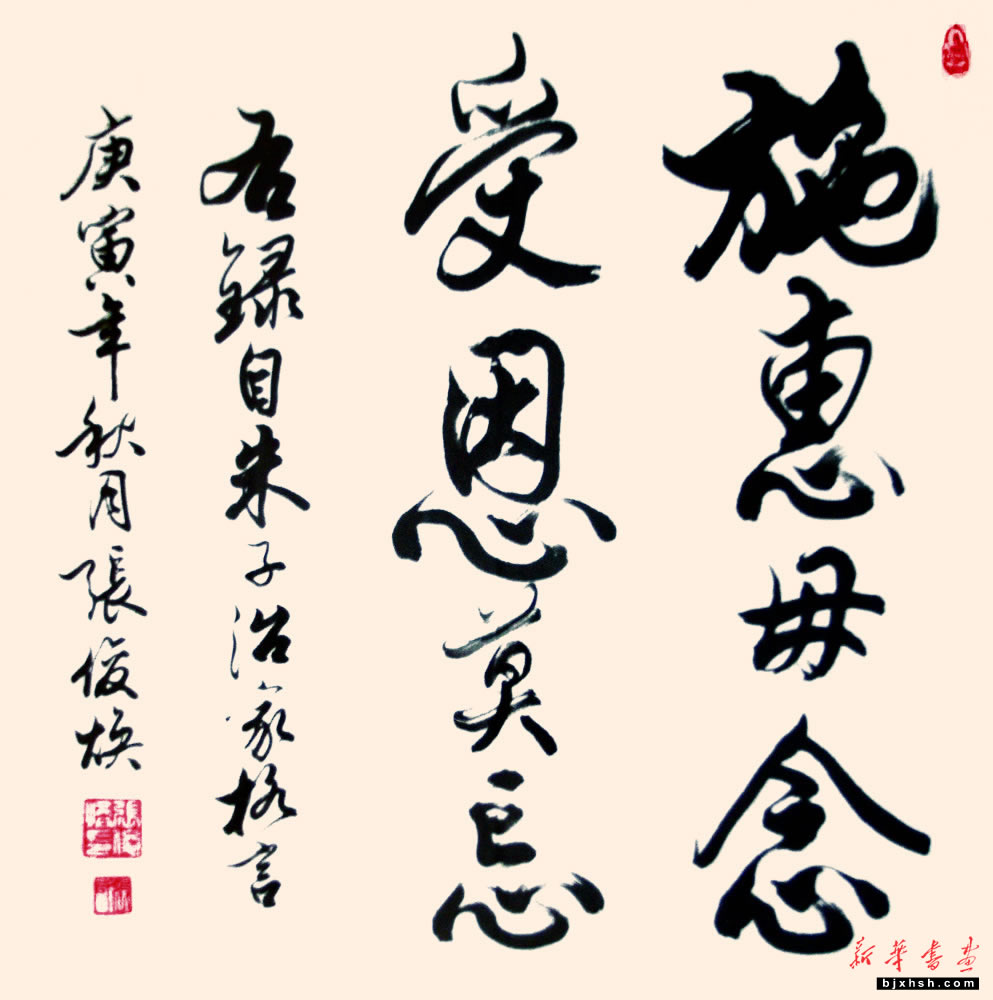 施惠毋念
受恩莫忘
右録自朱子治家格言
庚寅年秋月張俊煥
新華書畫
bjxhsh.com